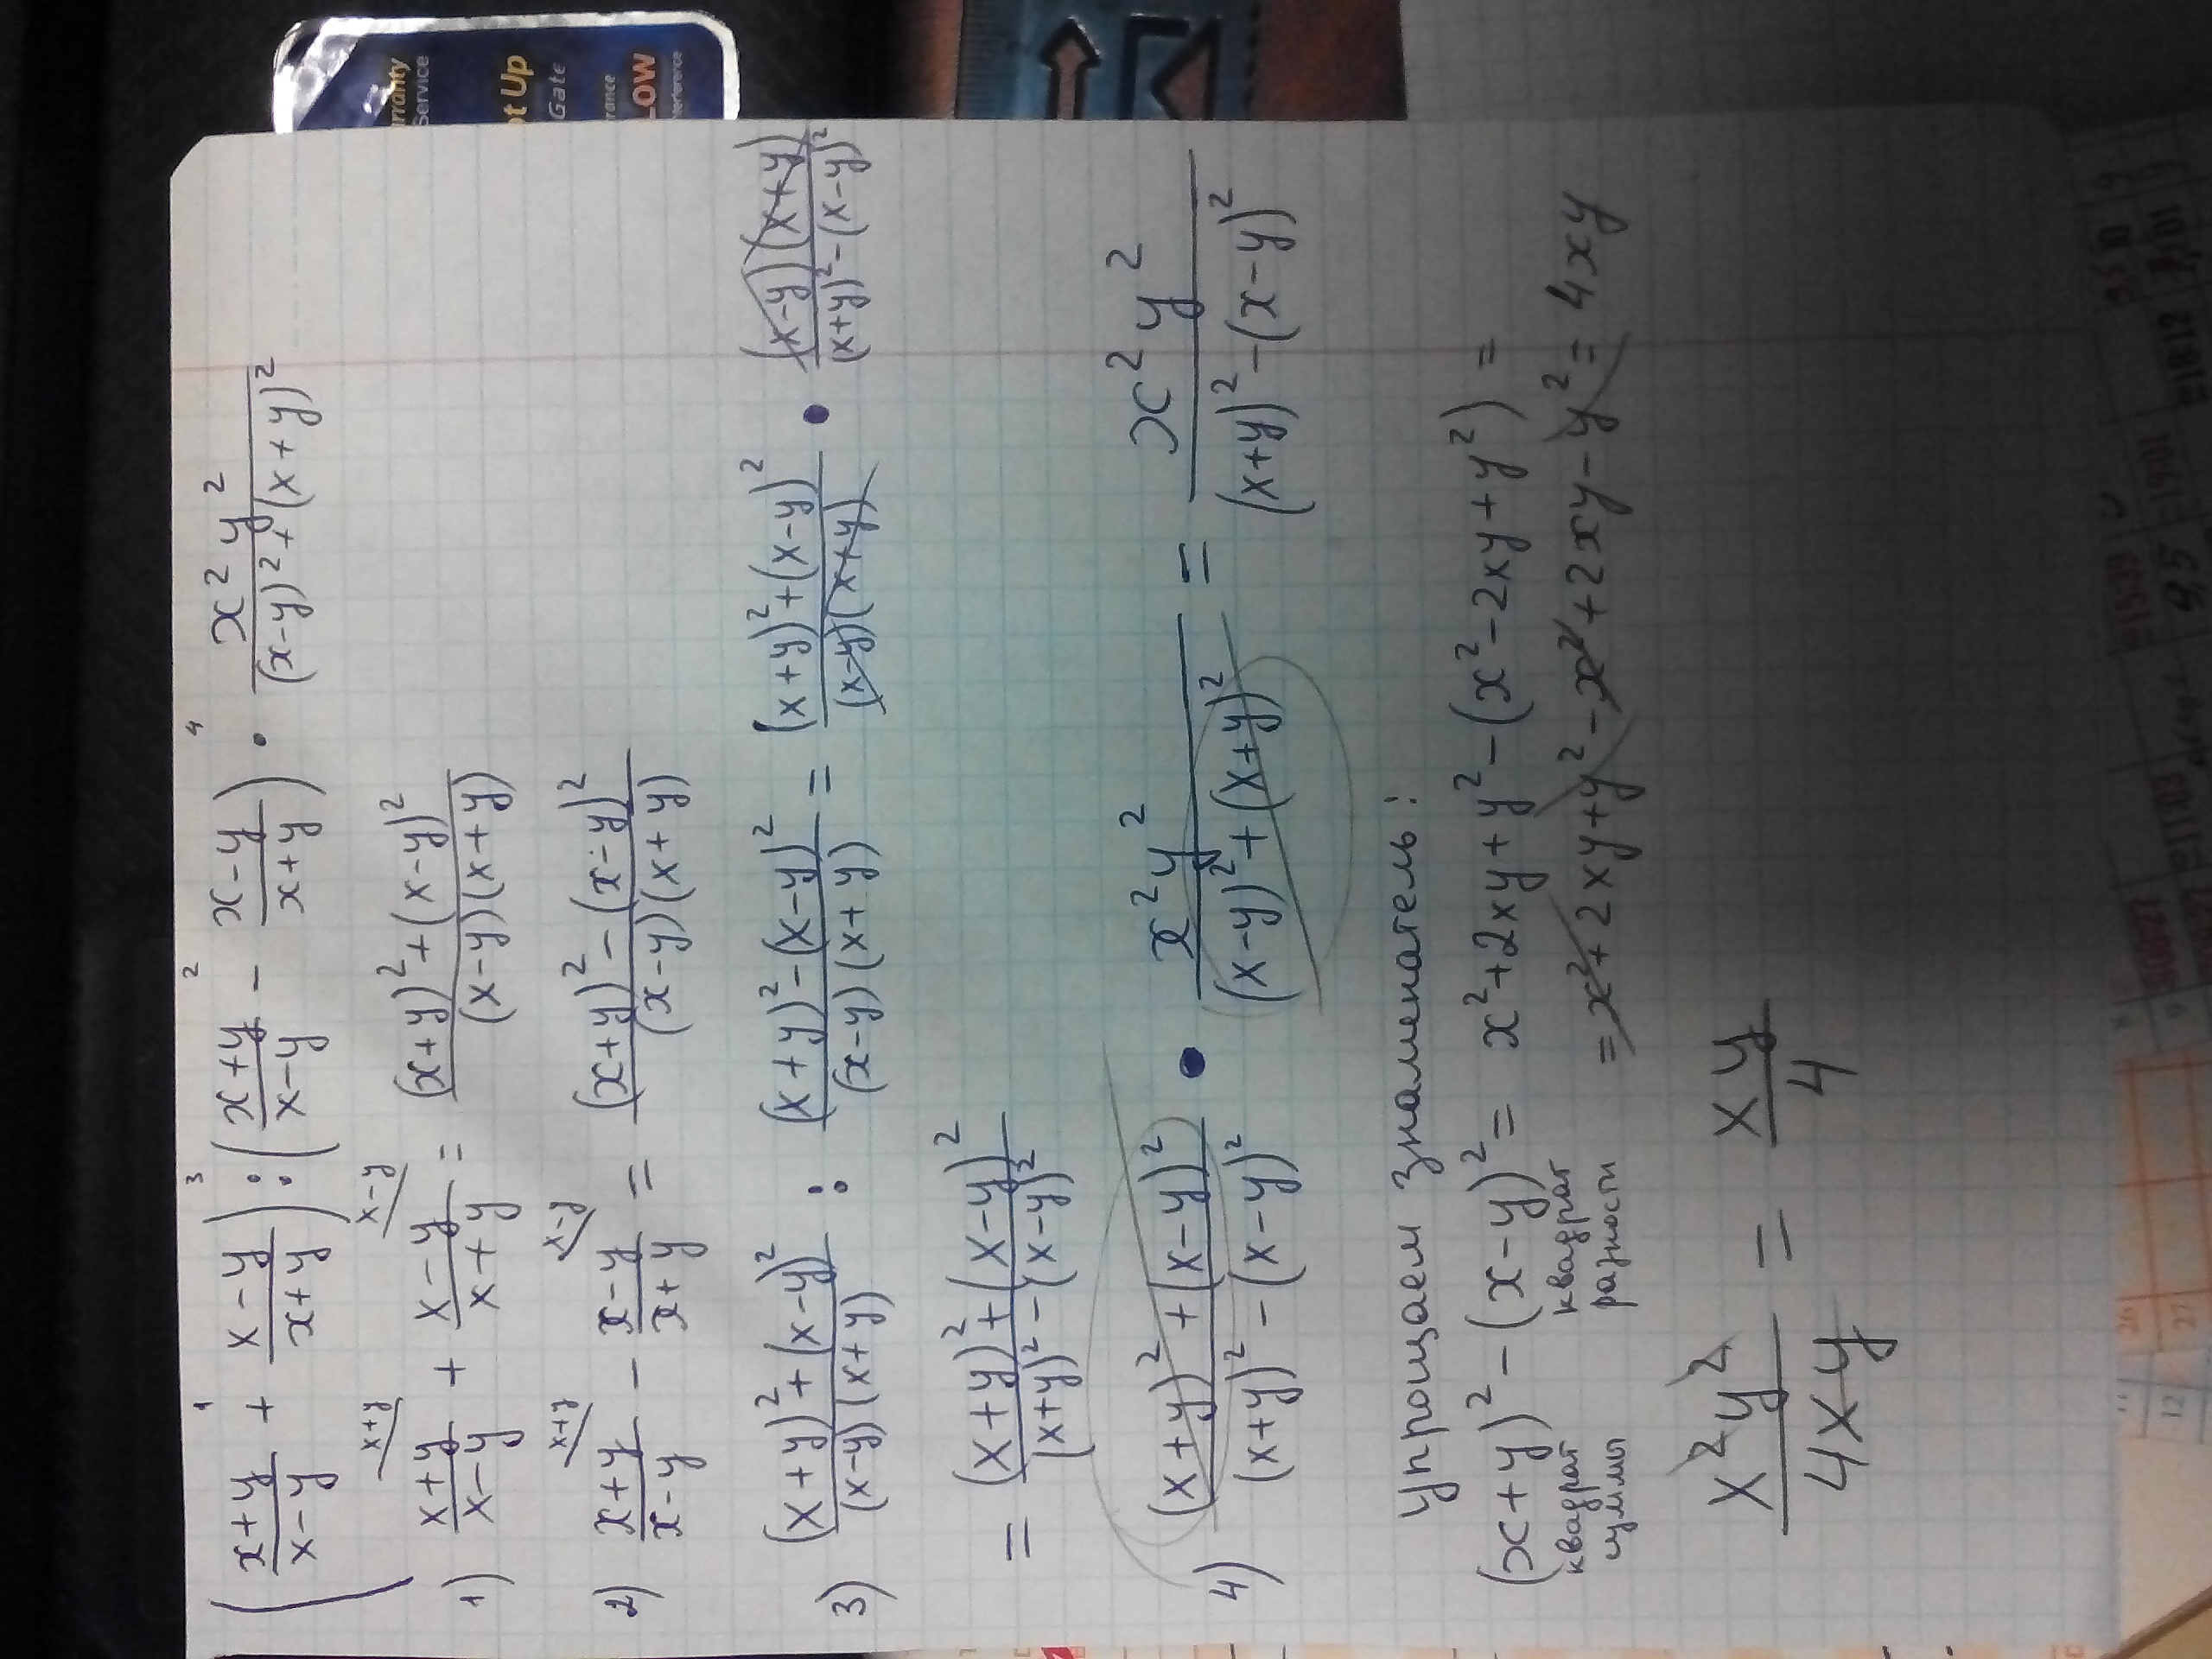 ( (x+y)/(x-y) +¹ (x-y)/(x+y) ) :³ ( (x+y)/(x-y) -² (x-y)/(x+y) ) ·⁴ x²y²/((x-y)²+(x+y)²)
1) (x+y)/(x-y) \x+y + (x-y)/(x+y) \x-y = ((x+y)²+(x-y)²)/((x-y)(x+y))
2) (x+y)/(x-y) \x+y - (x-y)/(x+y) \x-y = ((x+y)²-(x-y)²)/((x-y)(x+y))
3) ((x+y)²+(x-y)²)/((x-y)(x+y)) : ((x+y)²-(x-y)²)/((x-y)(x+y)) = ((x+y)²+(x-y)²)/((x-y)(x+y)) · ((x-y)(x+y))/((x+y)²-(x-y)²)
= ((x+y)²+(x-y)²)/((x+y)²-(x-y)²)
4) ((x+y)²+(x-y)²)/((x+y)²-(x-y)²) · x²y²/((x-y)²+(x+y)²) = x²y²/((x+y)²-(x-y)²)
упрощаем знаменатель:
(x+y)²-(x-y)² = x²+2xy+y²-(x²-2xy+y²) =
квадрат суммы квадрат разности
= x²+2xy+y²-x²+2xy-y² = 4xy
x²y²/4xy = xy/4
rranty
Service
t Up
Gate
rance
LOW
nterference